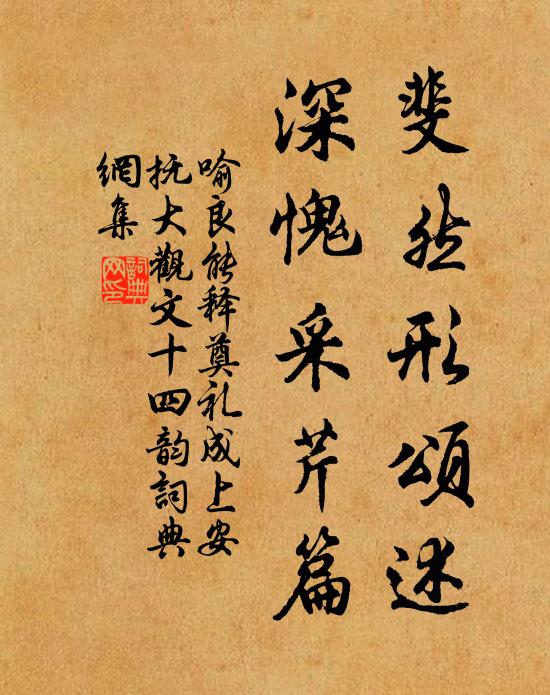 斐然形頌述
深愧采芹篇
喻良能释奠礼成上安
抚大觀文十四韵詞典
網集
詞典
网印